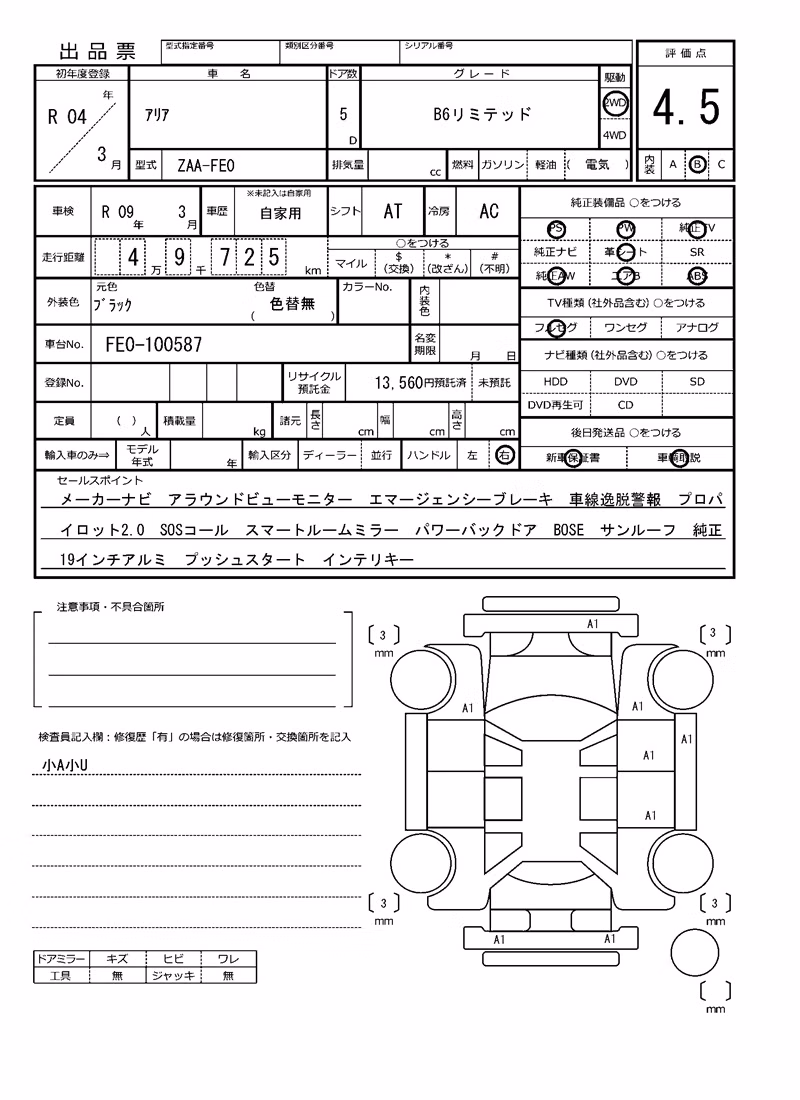 出品票
型式指定番号 類別区分番号 シリアル番号
評価点
4.5
内装 A B C
初年度登録 車名 ドア数 グレード 駆動
R 04 年 3 月 アリア 5 D B6リミテッド 2WD 4WD
型式 ZAA-FE0 排気量 cc 燃料 ガソリン 軽油 ( 電気 )
車検 R 09 年 3 月 車歴 ※未記入は自家用 自家用 シフト AT 冷房 AC
走行距離 4 万 9 千 7 2 5 km
○をつける
マイル $ (交換) * (改ざん) # (不明)
外装色 元色 ブラック 色替 ( 色替無 ) カラーNo. 内装色
車台No. FE0-100587 名変期限 月 日
登録No. リサイクル預託金 13,560円預託済 未預託
定員 ( ) 人 積載量 kg 諸元 長さ cm 幅 cm 高さ cm
輸入車のみ⇒ モデル年式 年 輸入区分 ディーラー 並行 ハンドル 左 右
純正装備品 ○をつける
PS PW 純正TV
純正ナビ 革シート SR
純正AW エアB ABS
TV種類(社外品含む)○をつける
フルセグ ワンセグ アナログ
ナビ種類(社外品含む)○をつける
HDD DVD SD
DVD再生可 CD
後日発送品 ○をつける
新車保証書 車輌取説
セールスポイント
メーカーナビ アラウンドビューモニター エマージェンシーブレーキ 車線逸脱警報 プロパ
イロット2.0 SOSコール スマートルームミラー パワーバックドア BOSE サンルーフ 純正
19インチアルミ プッシュスタート インテリキー
注意事項・不具合箇所
検査員記入欄:修復歴「有」の場合は修復箇所・交換箇所を記入
小A小U
ドアミラー キズ ヒビ ワレ
工具 無 ジャッキ 無
A1
[ 3 ] mm [ 3 ] mm
A1 A1
A1 A1
A1
[ 3 ] mm [ 3 ] mm
A1 A1
[ ] mm